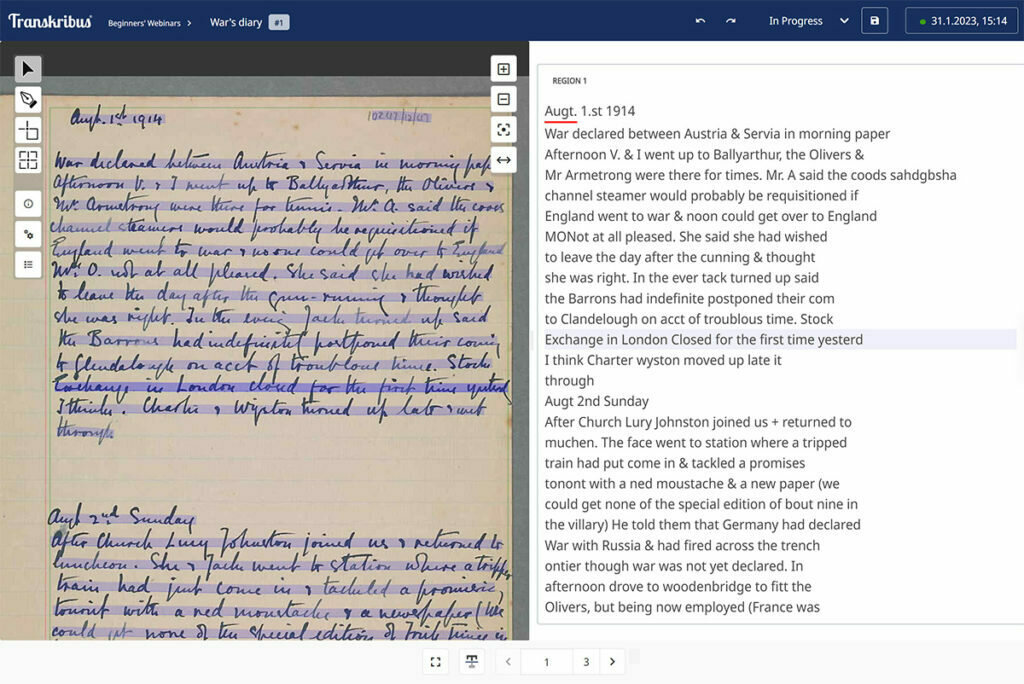 Transkribus
Beginners' Webinars >
War's diary #1
In Progress
31.1.2023, 15:14
Augt. 1st 1914
War declared between Austria & Servia in morning pap
Afternoon V. & I went up to Ballyarthur, the Oliviers &
Mr. Armstrong were there for tennis. Mr. A. said the cross
channel steamers would probably be requisitioned if
England went to war & no one could get over to England
Mrs. O. not at all pleased. She said she had wished
to leave the day after the gun-running & thought
she was right. In the eveing Jack turned up said
the Barrons had indefinitely postponed their coming
to Glendalough on acct of troublous times. Stock
Exchange in London closed for the first time
I think. Charlie & Wyston turned up late & wet
through.
Augt 2nd Sunday
After Church Lucy Johnston joined us & returned to
luncheon. She & Jack went to station where a tripper
train had just come in & tackled a promising
tourist with a red moustache & a newspaper (We
could get none of the special edition of Irish Times in
REGION 1
Augt. 1.st 1914
War declared between Austria & Servia in morning paper
Afternoon V. & I went up to Ballyarthur, the Olivers &
Mr Armetrong were there for times. Mr. A said the coods sahdgbsha
channel steamer would probably be requisitioned if
England went to war & noon could get over to England
MONot at all pleased. She said she had wished
to leave the day after the cunning & thought
she was right. In the ever tack turned up said
the Barrons had indefinite postponed their com
to Clandelough on acct of troublous time. Stock
Exchange in London Closed for the first time yesterd
I think Charter wyston moved up late it
through
Augt 2nd Sunday
After Church Lury Johnston joined us + returned to
muchen. The face went to station where a tripped
train had put come in & tackled a promises
tonont with a ned moustache & a new paper (we
could get none of the special edition of bout nine in
the villary) He told them that Germany had declared
War with Russia & had fired across the trench
ontier though war was not yet declared. In
afternoon drove to woodenbridge to fitt the
Olivers, but being now employed (France was
1
3